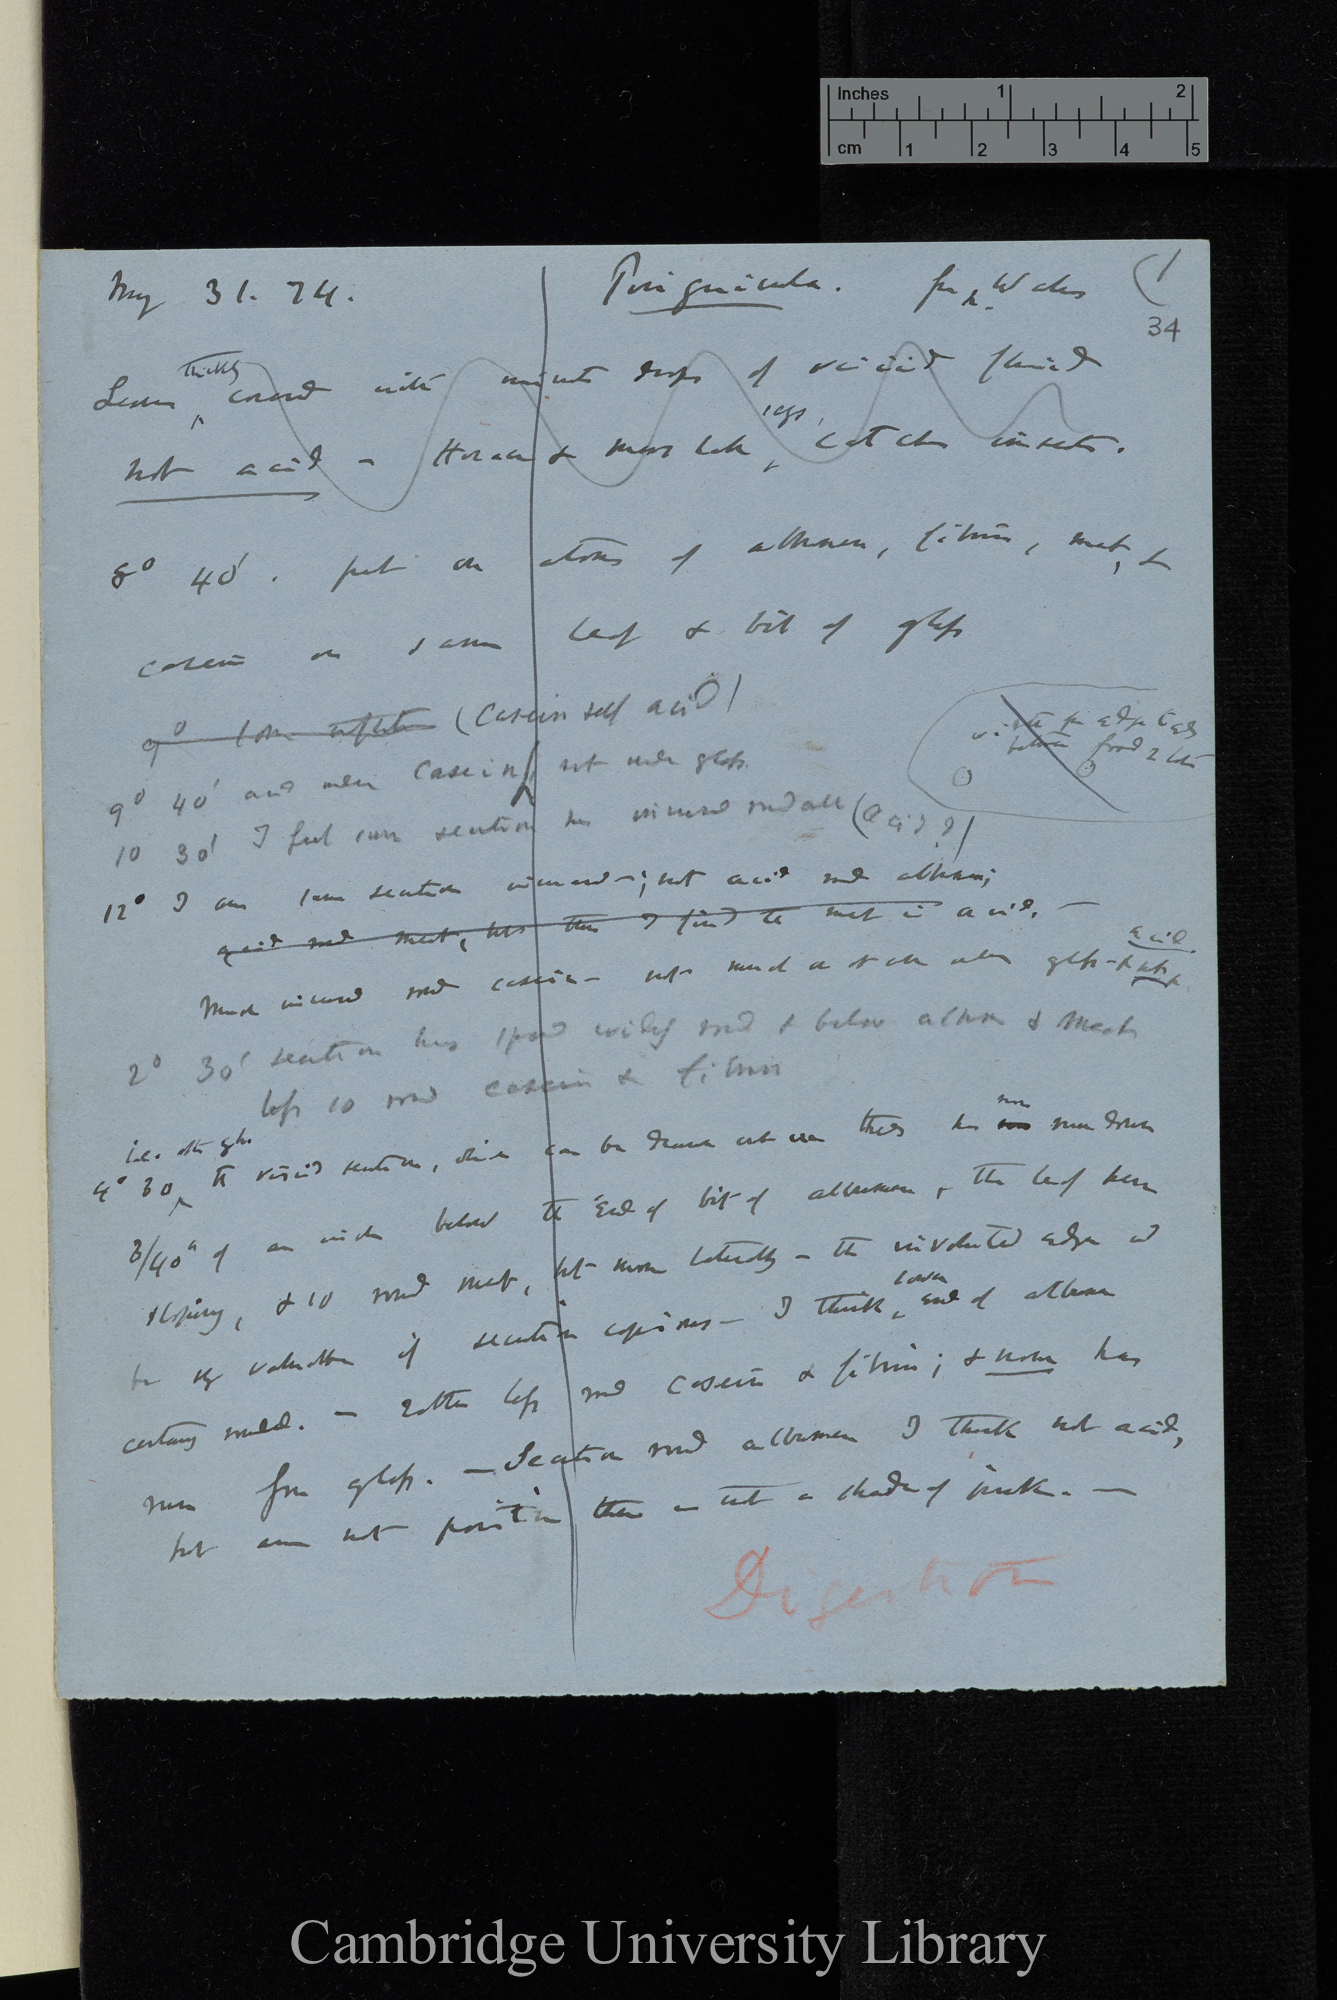 Inches 1 2
cm 1 2 3 4 5
May 31. 74. Pinguicula. from N. Wales (1
34
Leaves thickly covered with minute drops of viscid fluid
not acid – Horace & Mars leaf, catches insects.
8° 40'. put on atoms of albumen, fibrin, meat, &
casein on same leaf & bit of glass
9° some (Casein self acid)
9° 40' acid under casein, not under glass
10 30' I feel sure secretion has increased round all (acid?)
12° I am sure secretion increased –; not acid round albumen;
acid round meat, but then I find the meat is acid. –
Much increased round casein – not much or at all under glass – & not acid.
2° 30' secretion has spread widely round & below albumen & meat
less so round casein & fibrin
i.e. after 8 hrs
4° 30 the viscid secretion, which can be drawn out into threads has now run down
3/40" of an inch below the end of bit of albumen, the leaf being
sloping, & so round meat, but more laterally – the involuted edges
be if secretion copious – I think lower end of albumen
certainly round. – rather less round casein & fibrin; & none has
run from glass. – Secretion round albumen I think not acid,
but am not positive there is not a shade of pink. –
Digestion
Cambridge University Library